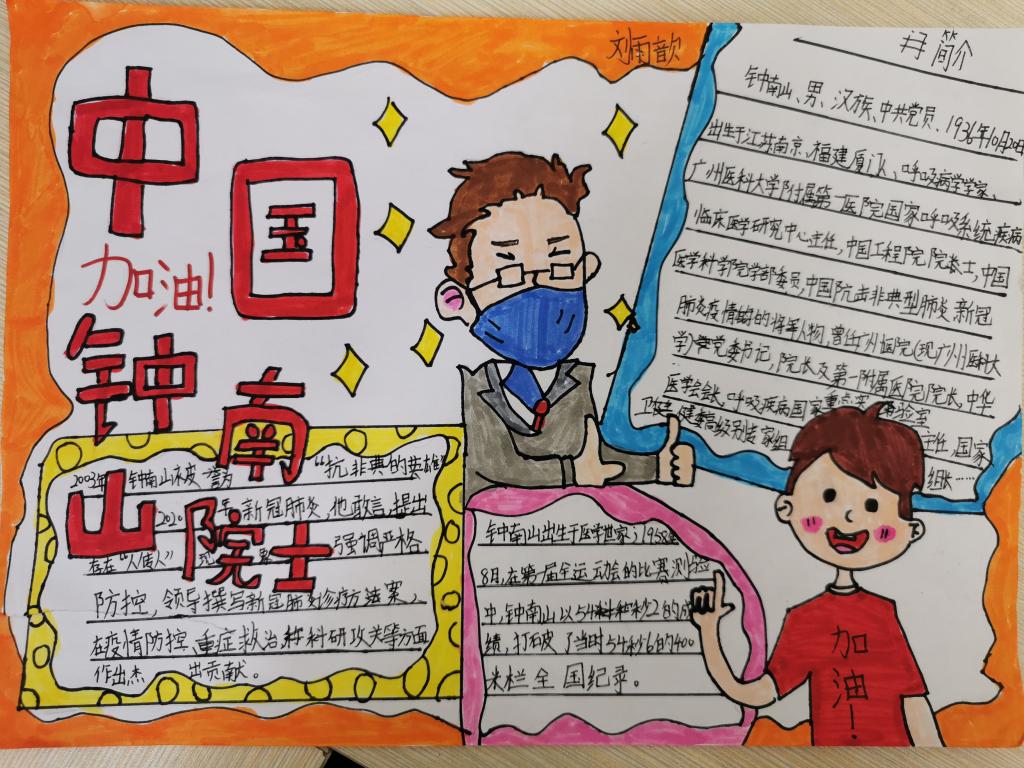 中国
加油!
钟南山院士
刘雨歆
简介
钟南山、男、汉族、中共党员、1936年10月20日
出生于江苏南京、福建厦门人、呼吸病学学家、
广州医科大学附属第一医院国家呼吸系统疾病
临床医学研究中心主任,中国工程院院士,中国
医学科学院学部委员,中国抗击非典型肺炎新冠
肺炎疫情的的将军人物,曾任广州医院(现广州医科大
学)党委书记,院长及第一附属医院院长,中华
医学会会长、呼吸疾病国家重点实验室
主任,国家
卫健委高级别专家组
组长……
2003年 钟南山被誉为 “抗非典的英雄”
2020年新冠肺炎他敢言提出
存在“人传人” 强调严格
防控,领导撰写新冠肺炎诊疗方法案,
在疫情防控、重症救治、科研攻关等方面
作出杰出贡献。
钟南山出生于医学世家;1958年
8月,在第一届全运动会的比赛测验
中,钟南山以54秒2的成
绩,打破了当时54秒6的400
米栏全国纪录。
加
油
!